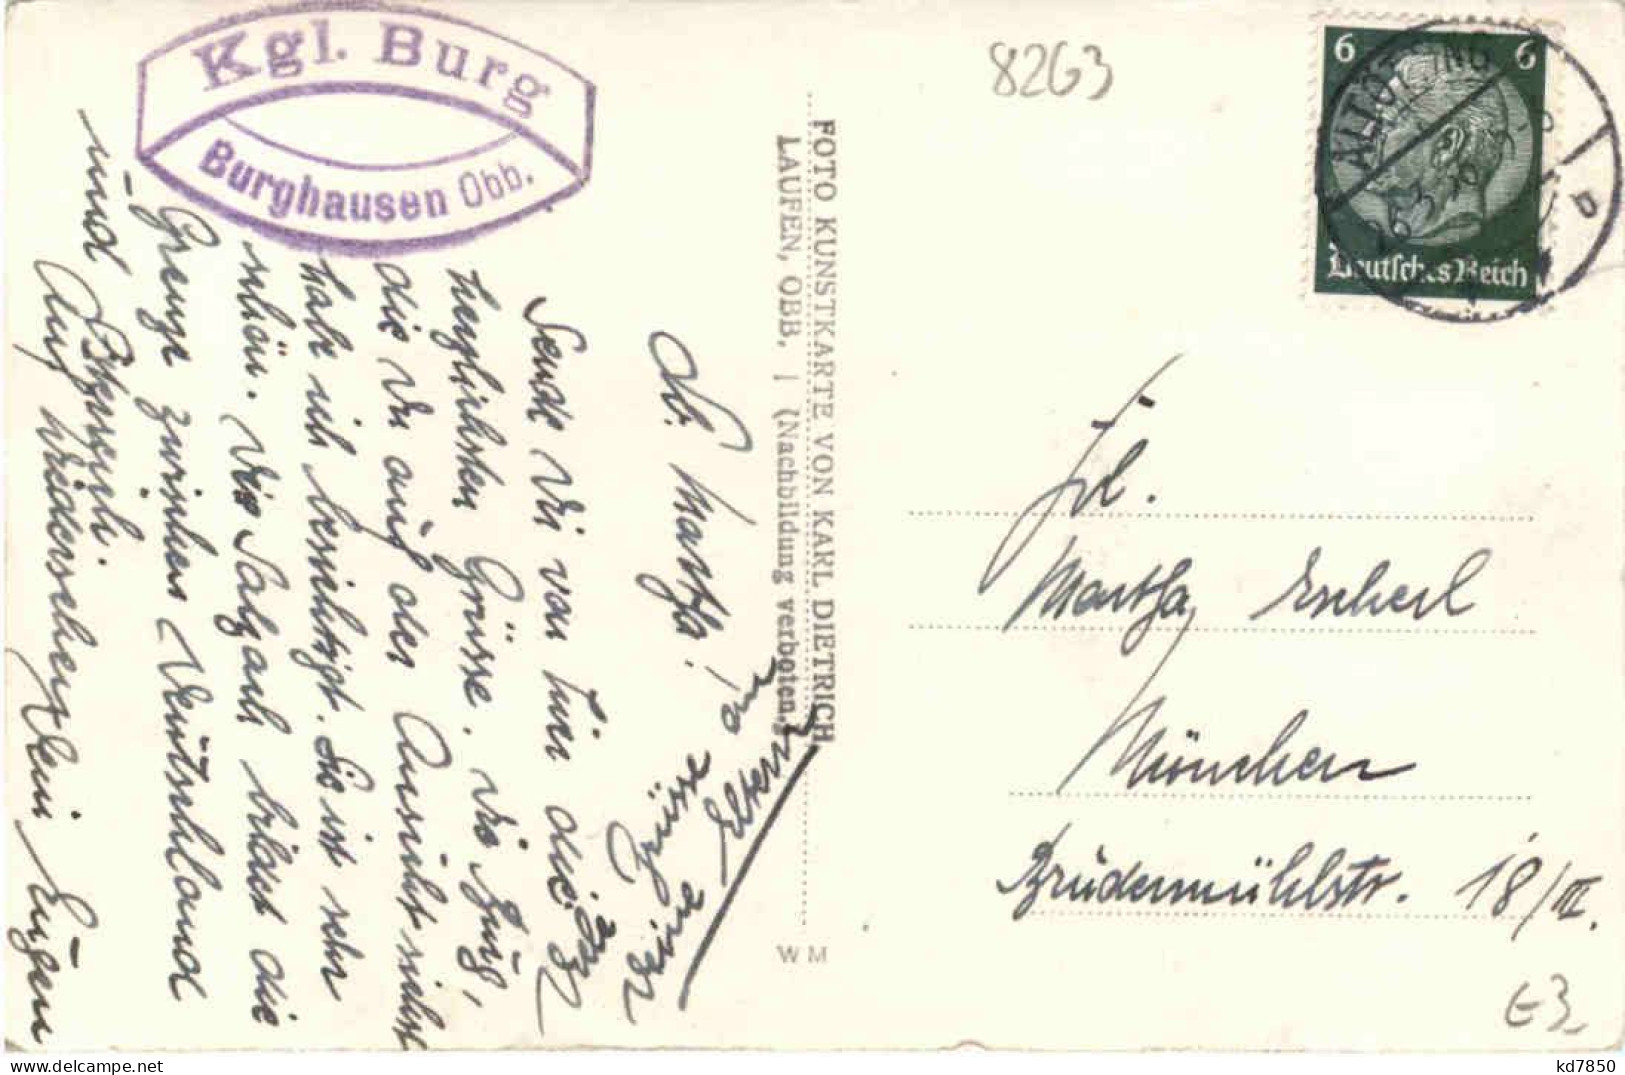 Kgl. Burg
Burghausen Obb.
8263
6 6
Deutsches Reich
ALTÖTTING
FOTO KUNSTKARTE VON KARL DIETRICH
LAUFEN, OBB. | (Nachbildung verboten.)
WM
Lb. Martha!
Sende Dir von hier die
herzlichsten Grüsse. Die Burg,
die Du auf der Ansicht siehst
habe ich besichtigt. Sie ist sehr
schön. Die Salzach bildet die
Grenze zwischen Deutschland
und Österreich.
Auf Wiedersehen Dein Eugen
Grüsse an
Deine Eltern
Frl.
Martha Escherl
München
Brudermühlstr. 18/III.
€3.
kd7850